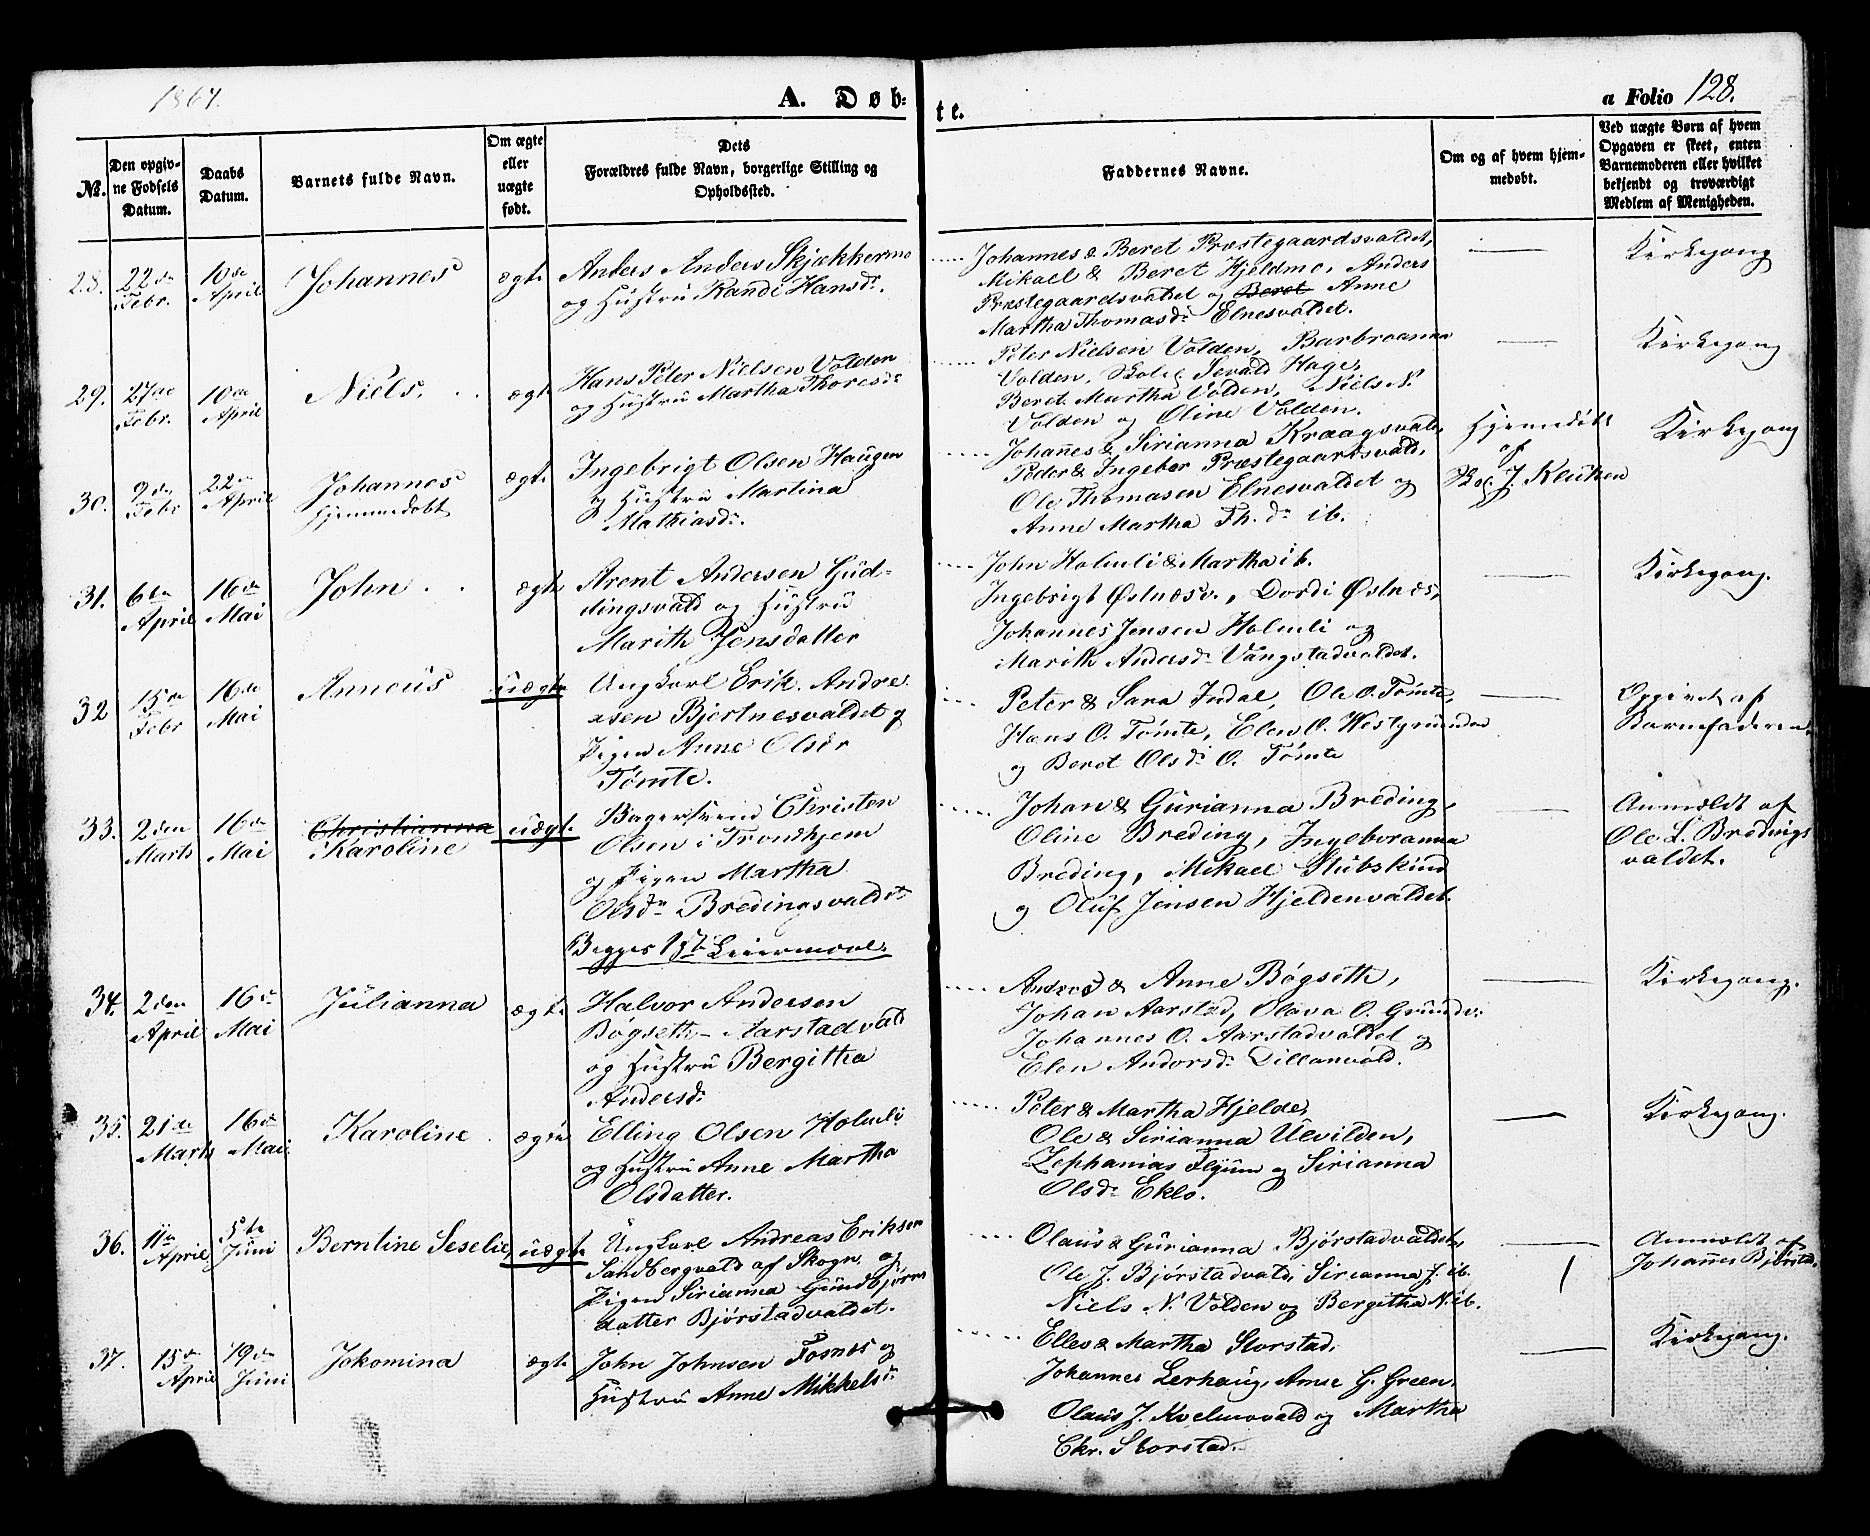 1864.
A. Døb:
te.
a Folio 128.
No.
Den opgiv-
ne Fødsels
Datum.
Daabs
Datum.
Barnets fulde Navn.
Om ægte
eller
uægte
født.
Dets
Forældres fulde Navn, borgerlige Stilling og
Opholdssted.
Faddernes Navne.
Om og af hvem hjem-
medøbt.
Ved uægte Børn af hvem
Opgaven er skeet, enten
Barnemoderen eller hvilket
bekjendt og troværdigt
Medlem af Menigheden.
28.
22de
Febr.
10de
April
Johannes
ægte
Anders Anders Skjækkermo
og Hustru Randi Hansd.
Johannes & Beret Præstegaardsvaldet,
Mikael & Beret Hjeldmo, Anders
Præstegaardsvaldet og Beret Anne
Martha Thomasd. Elnesvaldet.
Kirkegang
29.
27de
Febr.
10de
April
Niels.
ægte
Hans Peter Nielsen Volden
og Hustru Martha Thoresd.
Peter Nielsen Volden, Barbroanna
Volden, Sevald Hage,
Beret Martha Volden, Niels N.
Volden og Oline Volden.
Kirkegang
30.
9de
Febr
22de
April
Johannes
hjemmedøbt
ægte
Ingebrigt Olsen Haugen
og Hustru Martina
Mathiasd.
Johannes & Sirianna Kraagsvald,
Peder & Ingebor Præstegaardsvald,
Ole Thomasen Elnesvaldet og
Anne Martha Th.d. ib.
Hjemmedøbt
af
J. Kluken
Kirkegang
31.
6te
April
16de
Mai
John
ægte
Arent Andersen Gud-
dingsvald og Hustru
Marith Jensdatter
John Holmli & Martha ib.
Ingebrigt Østnæsv., Dordi Østnæs,
Johannes Jensen Holmli og
Marith Andersd. Vangstadvaldet.
Kirkegang.
32
15de
Febr
16de
Mai
Anneus
uægte
Ungkarl Erik Andre
asen Bjertnesvaldet og
Pigen Anne Olsdr
Tømte.
Peter & Sara Indal, Ole O. Tømte,
Hans O. Tømte, Elen O. Westgrunden
og Beret Olsd. O. Tømte
Opgivet af
Barnefaderen.
33.
2den
Marts
16de
Mai
Christianna
Karoline
uægt.
Bagersvend Christen
Olsen i Trondhjem
og Pigen Martha
Olsdr Bredingsvaldet
Begges 1ste Leiermaal.
Johan & Gurianna Breding,
Oline Breding, Ingeboranna
Breding, Mikael Stubskind
og Oluf Jensen Hjeldenvaldet.
Anmeldt af
Ole L. Bredings
valdet.
34.
2den
April
16de
Mai
Julianna
ægte
Halvor Andersen
Bøgseth-Aarstadvald
og Hustru Bergitha
Andersd.
Anders & Anne Bøgseth,
Johan Aarstad, Olava O. Grundv.
Johannes O. Aarstadvaldet og
Elen Andersd. Dillanvald.
Kirkegang.
35.
21de
Marts
16de
Mai
Karoline
ægte
Elling Olsen Holmli
og Hustru Anne Martha
Olsdatter.
Peter & Martha Hjelde,
Ole & Sirianna Ulvilden,
Zephanias Flyum og Sirianna
Olsd. Eklo.
Kirkegang.
36.
11te
April
5te
Juni
Berntine Seselie
uægte
Ungkarl Andreas Eriksen
Sandbergvald af Skogn og
Pigen Sirianna Gundbjørns
datter Bjørstadvaldet.
Olaus & Gurianna Bjørstadvaldet,
Ole J. Bjørstadvald, Sirianna J. ib.
Niels N. Volden og Bergitha N. ib.
Anmeldt af
Johannes Bjørstad
37.
15de
April
19de
Juni
Jokomina
ægte
John Johnsen Fosnæs og
Hustru Anne Mikkelsd.
Ellev & Martha Storstad,
Johannes Lerhaug, Anne G. Green,
Olaus J. Kvelmovald og Martha
Chr. Storstad.
Kirkegang.